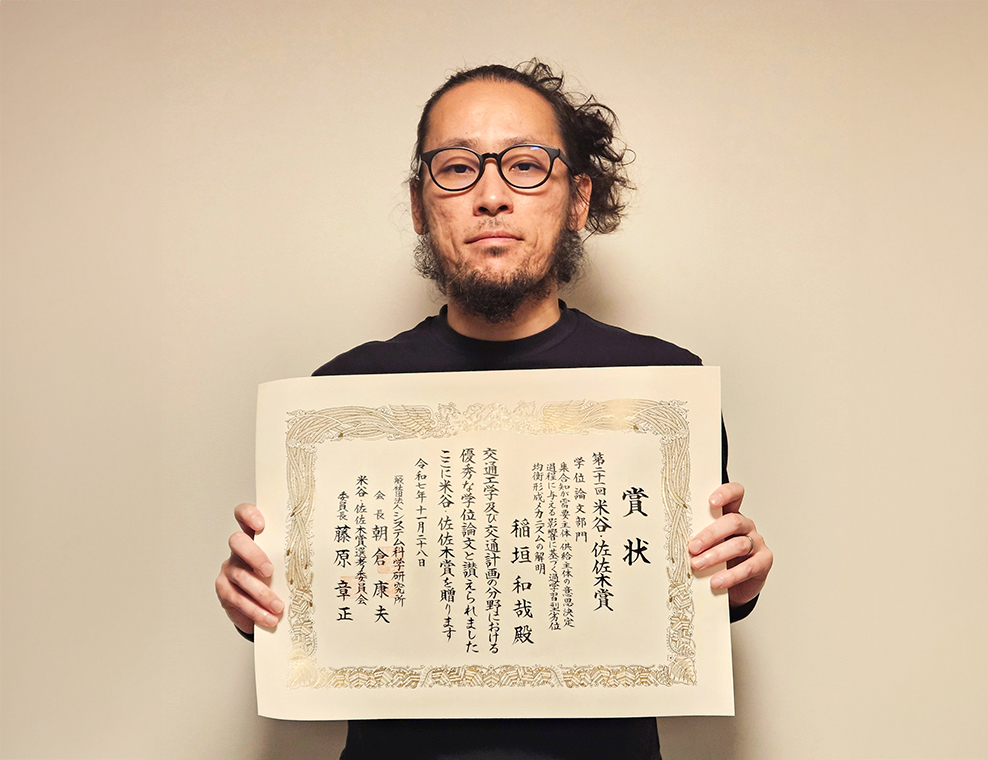 賞状
第二十一回 米谷・佐佐木賞
学位論文部門
集合知が需要主体・供給主体の意思決定
過程に与える影響に基づく過学習型劣位
均衡形成メカニズムの解明
稲垣和哉殿
交通工学及び交通計画の分野における
優秀な学位論文と讃えられました
ここに米谷・佐佐木賞を贈ります
令和七年十一月二十八日
一般社団法人システム科学研究所
会長 朝倉康夫
米谷・佐佐木賞選考委員会
委員長 藤原章正